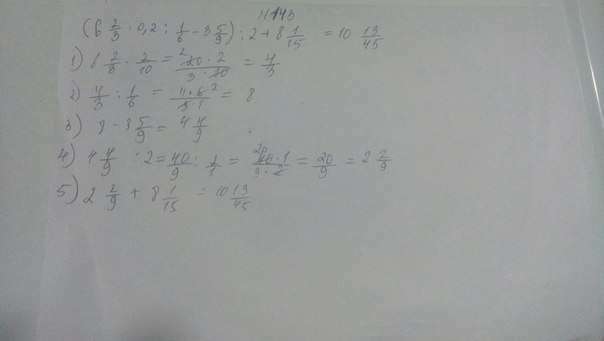 N143
(6 2/3 · 0,2 : 1/6 - 3 5/9) : 2 + 8 1/15 = 10 13/45
1) 6 2/3 · 2/10 = 20 · 2 / 3 · 10 = 4/3
2) 4/3 : 1/6 = 4 · 6 / 3 · 1 = 8
3) 8 - 3 5/9 = 4 4/9
4) 4 4/9 : 2 = 40/9 : 2/1 = 40 · 1 / 9 · 2 = 20/9 = 2 2/9
5) 2 2/9 + 8 1/15 = 10 13/45